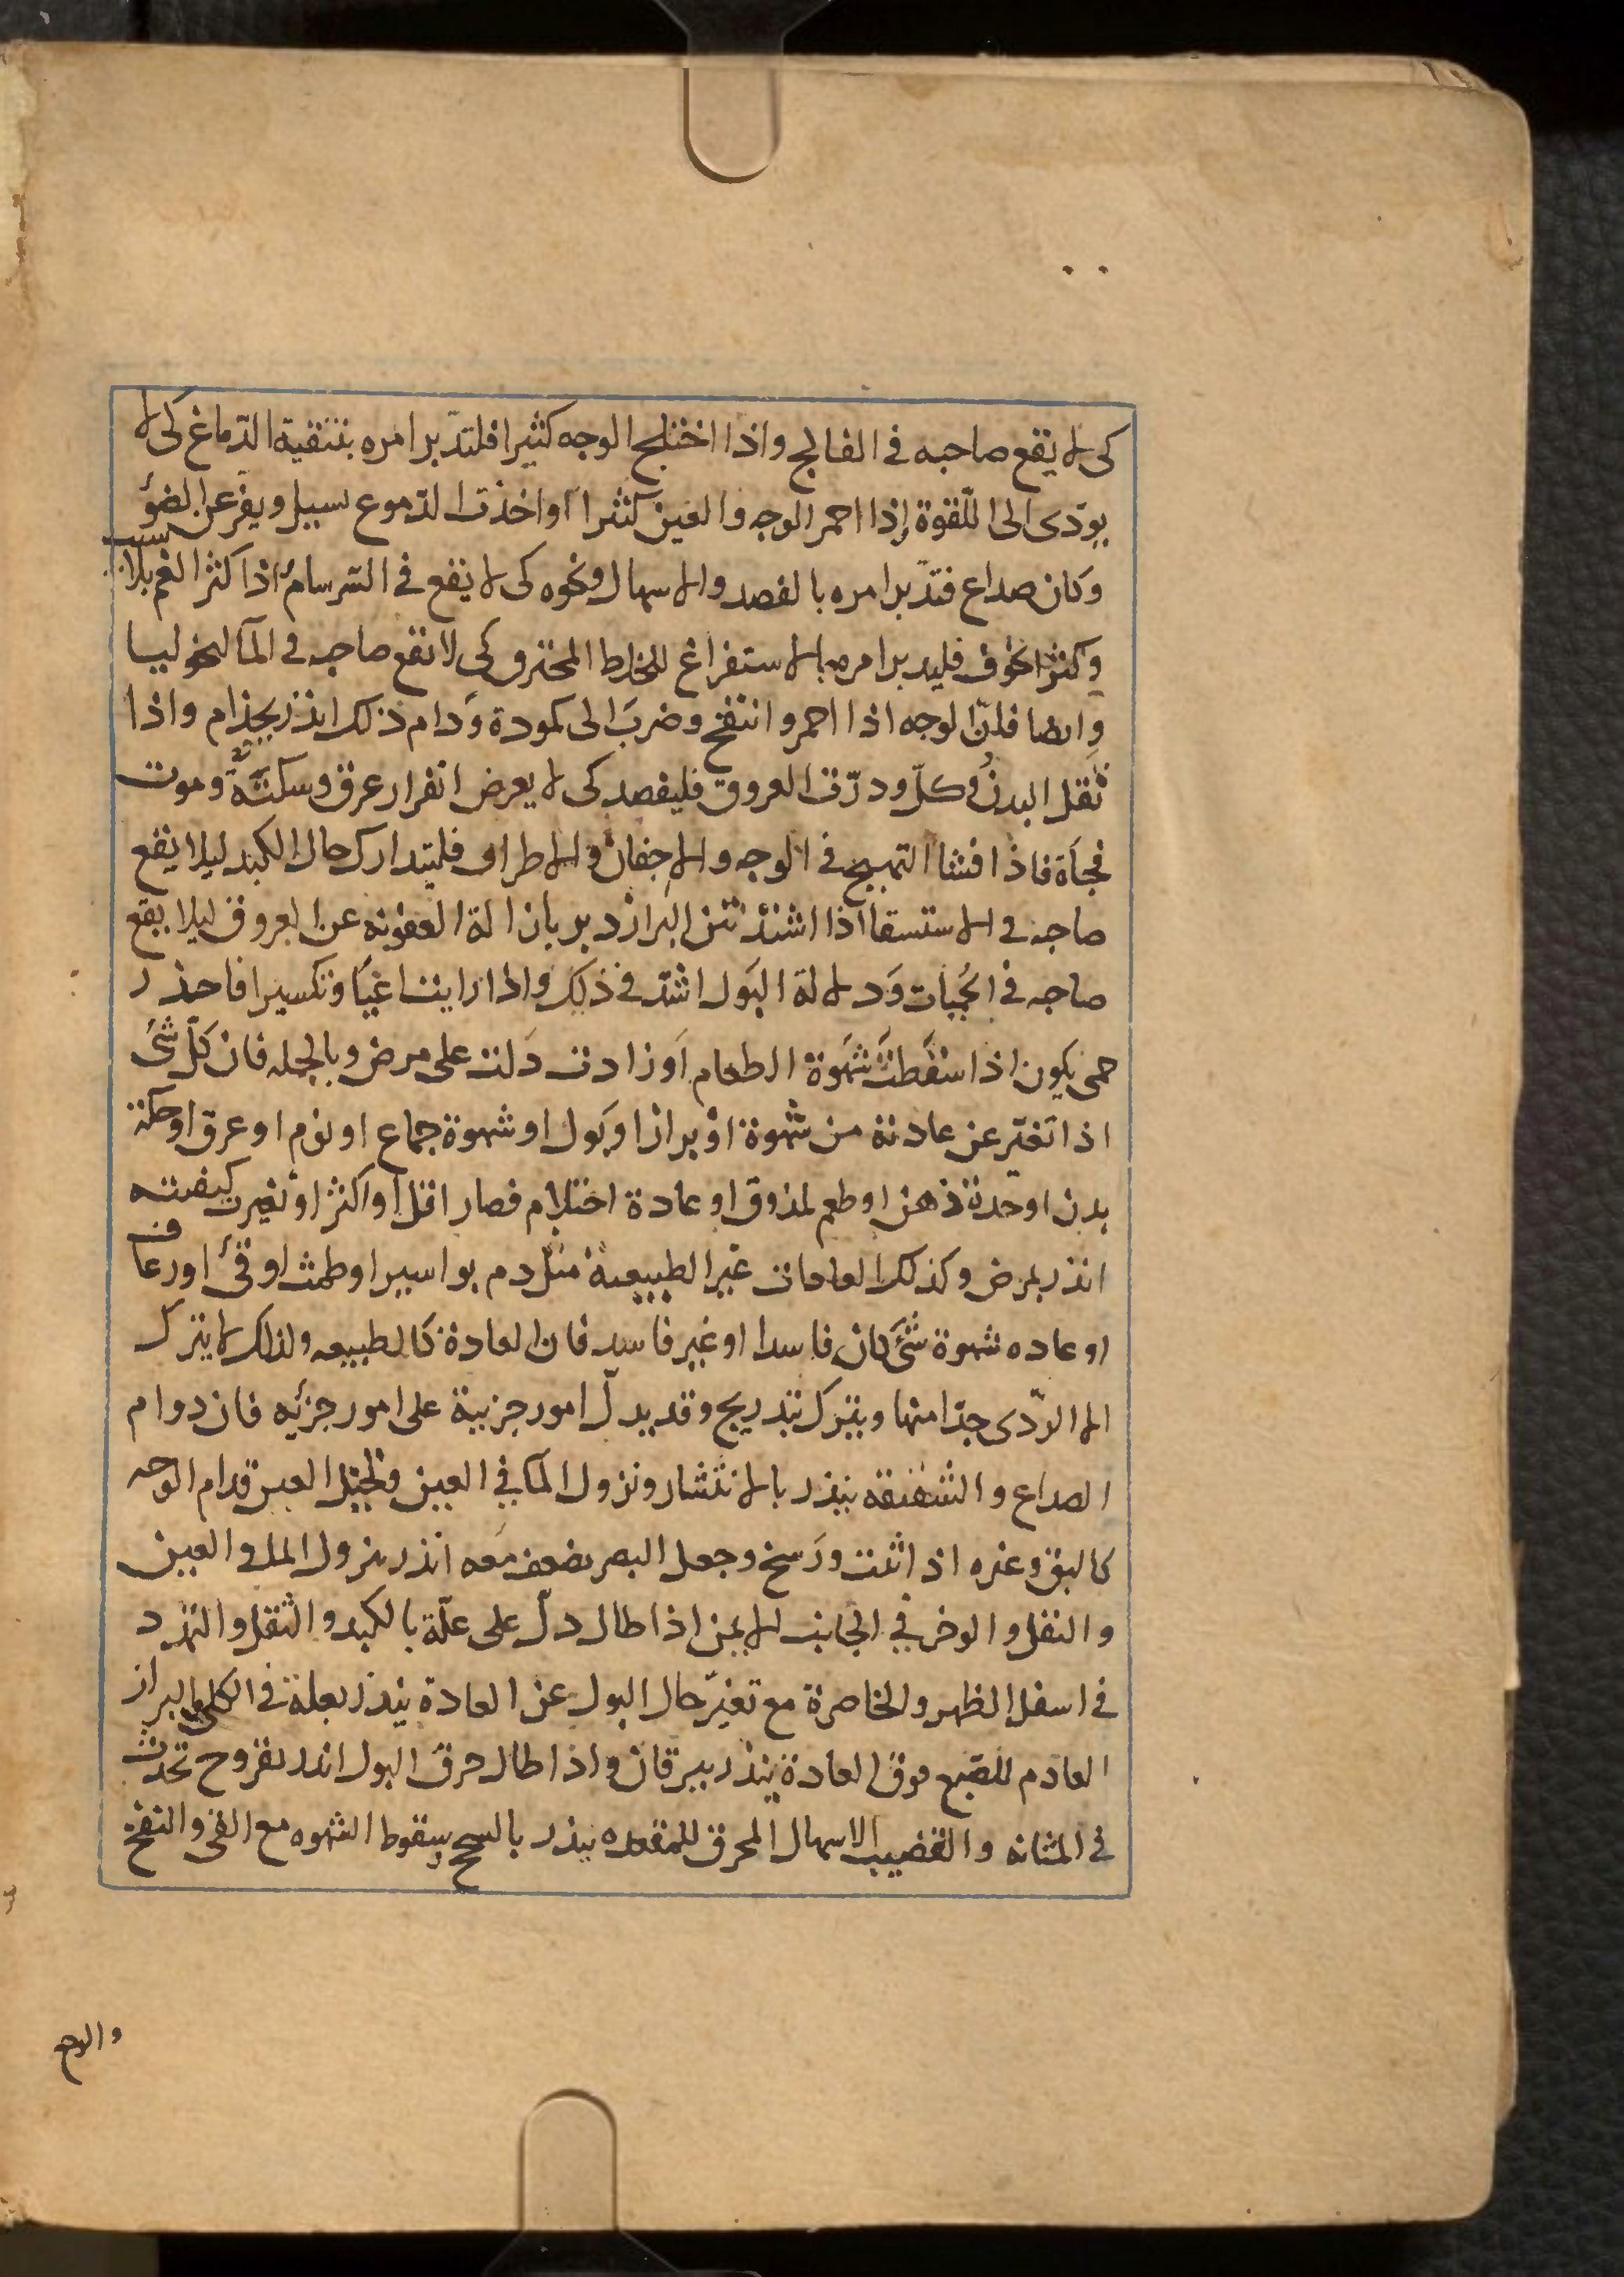 كى لا يقع صاحبه فى الفالج واذا اختلج الوجه كثيرا فلتدبر امره بتنقية الدماغ كى لا
يودى الى اللقوة إذا احمر الوجه والعين كثيرا واخذت الدموع تسيل ويفر عن الضؤ
وكان صداع فتدبر امره بالفصد والاسهال ونحوه كى لا يقع فى السرسام اذا كثر الغم بلا سبب
وكثر الخوف فليدبر امره بالاستفراغ للخلط المحترق كى لا تقع صاحبه فى المآلنخوليا
وايضا فان الوجه اذا احمر وانتفخ وضرب الى كمودة ودام ذلك انذر بجذام واذا
ثقل البدن وكلّ ودرّت العروق فليفصد كى لا يعرض انفرار عرق وسكتة وموت
فجأة فاذا افشا التهبج فى الوجه والاجفان والاطراف فليتدارك حال الكبد ليلا يقع
صاحبه فى الاستسقا اذا اشتد نتن البراز دبر بازالة العفونه عن العروق ليلا يقع
صاحبه فى الحميات ودلالة البول اشد فى ذلك واذا رايت اعياً وتكسيرا فاحذر
حمى يكون اذا سقطت شهوة الطعام او زادت دلت على مرض وبالجمله فان كلّ شئ
اذا تغير عن عادته من شهوة او براز او بول او شهوة جماع او نوم او عرق او حكة
بدن او حدة ذهن او طعم لمذوق او عادة احتلام فصار اقل او اكثر او تغيرت كيفيته
انذر بمرض وكذلك العادات غير الطبيعية مثل دم بواسير او طمث او قئ او رعاف
او عاده شهوة شئ كان فاسدا او غير فاسد فان العادة كالطبيعه ولذلك لا يترك
الا الردى جدّا منها ويترك بتدريج وقد يدل امور جزيية على امور جزئيه فان دوام
الصداع والشقيقه ينذر بالانتشار ونزول المآ فى العين وتخيل العين قدام الوجه
كالبق وغيره اذا ثبت ورسخ وجعل البصر يضعف معه انذر بنزول الما فى العين
والثقل والوخز فى الجانب الايمن اذا طال دل على علّة بالكبد والثقل والتمدد
فى اسفل الظهر والخاصرة مع تغيّر حال البول عن العادة ينذر بعلة فى الكلى والبراز
العادم للصبغ فوق العادة ينذر بيرقان واذا طال حرق البول انذر بقروح تحدث
فى المثانه والقضيب الاسهال المحرق للمقعده ينذر بالسحج وسقوط الشهوه مع القئ والنفخ
والوجع